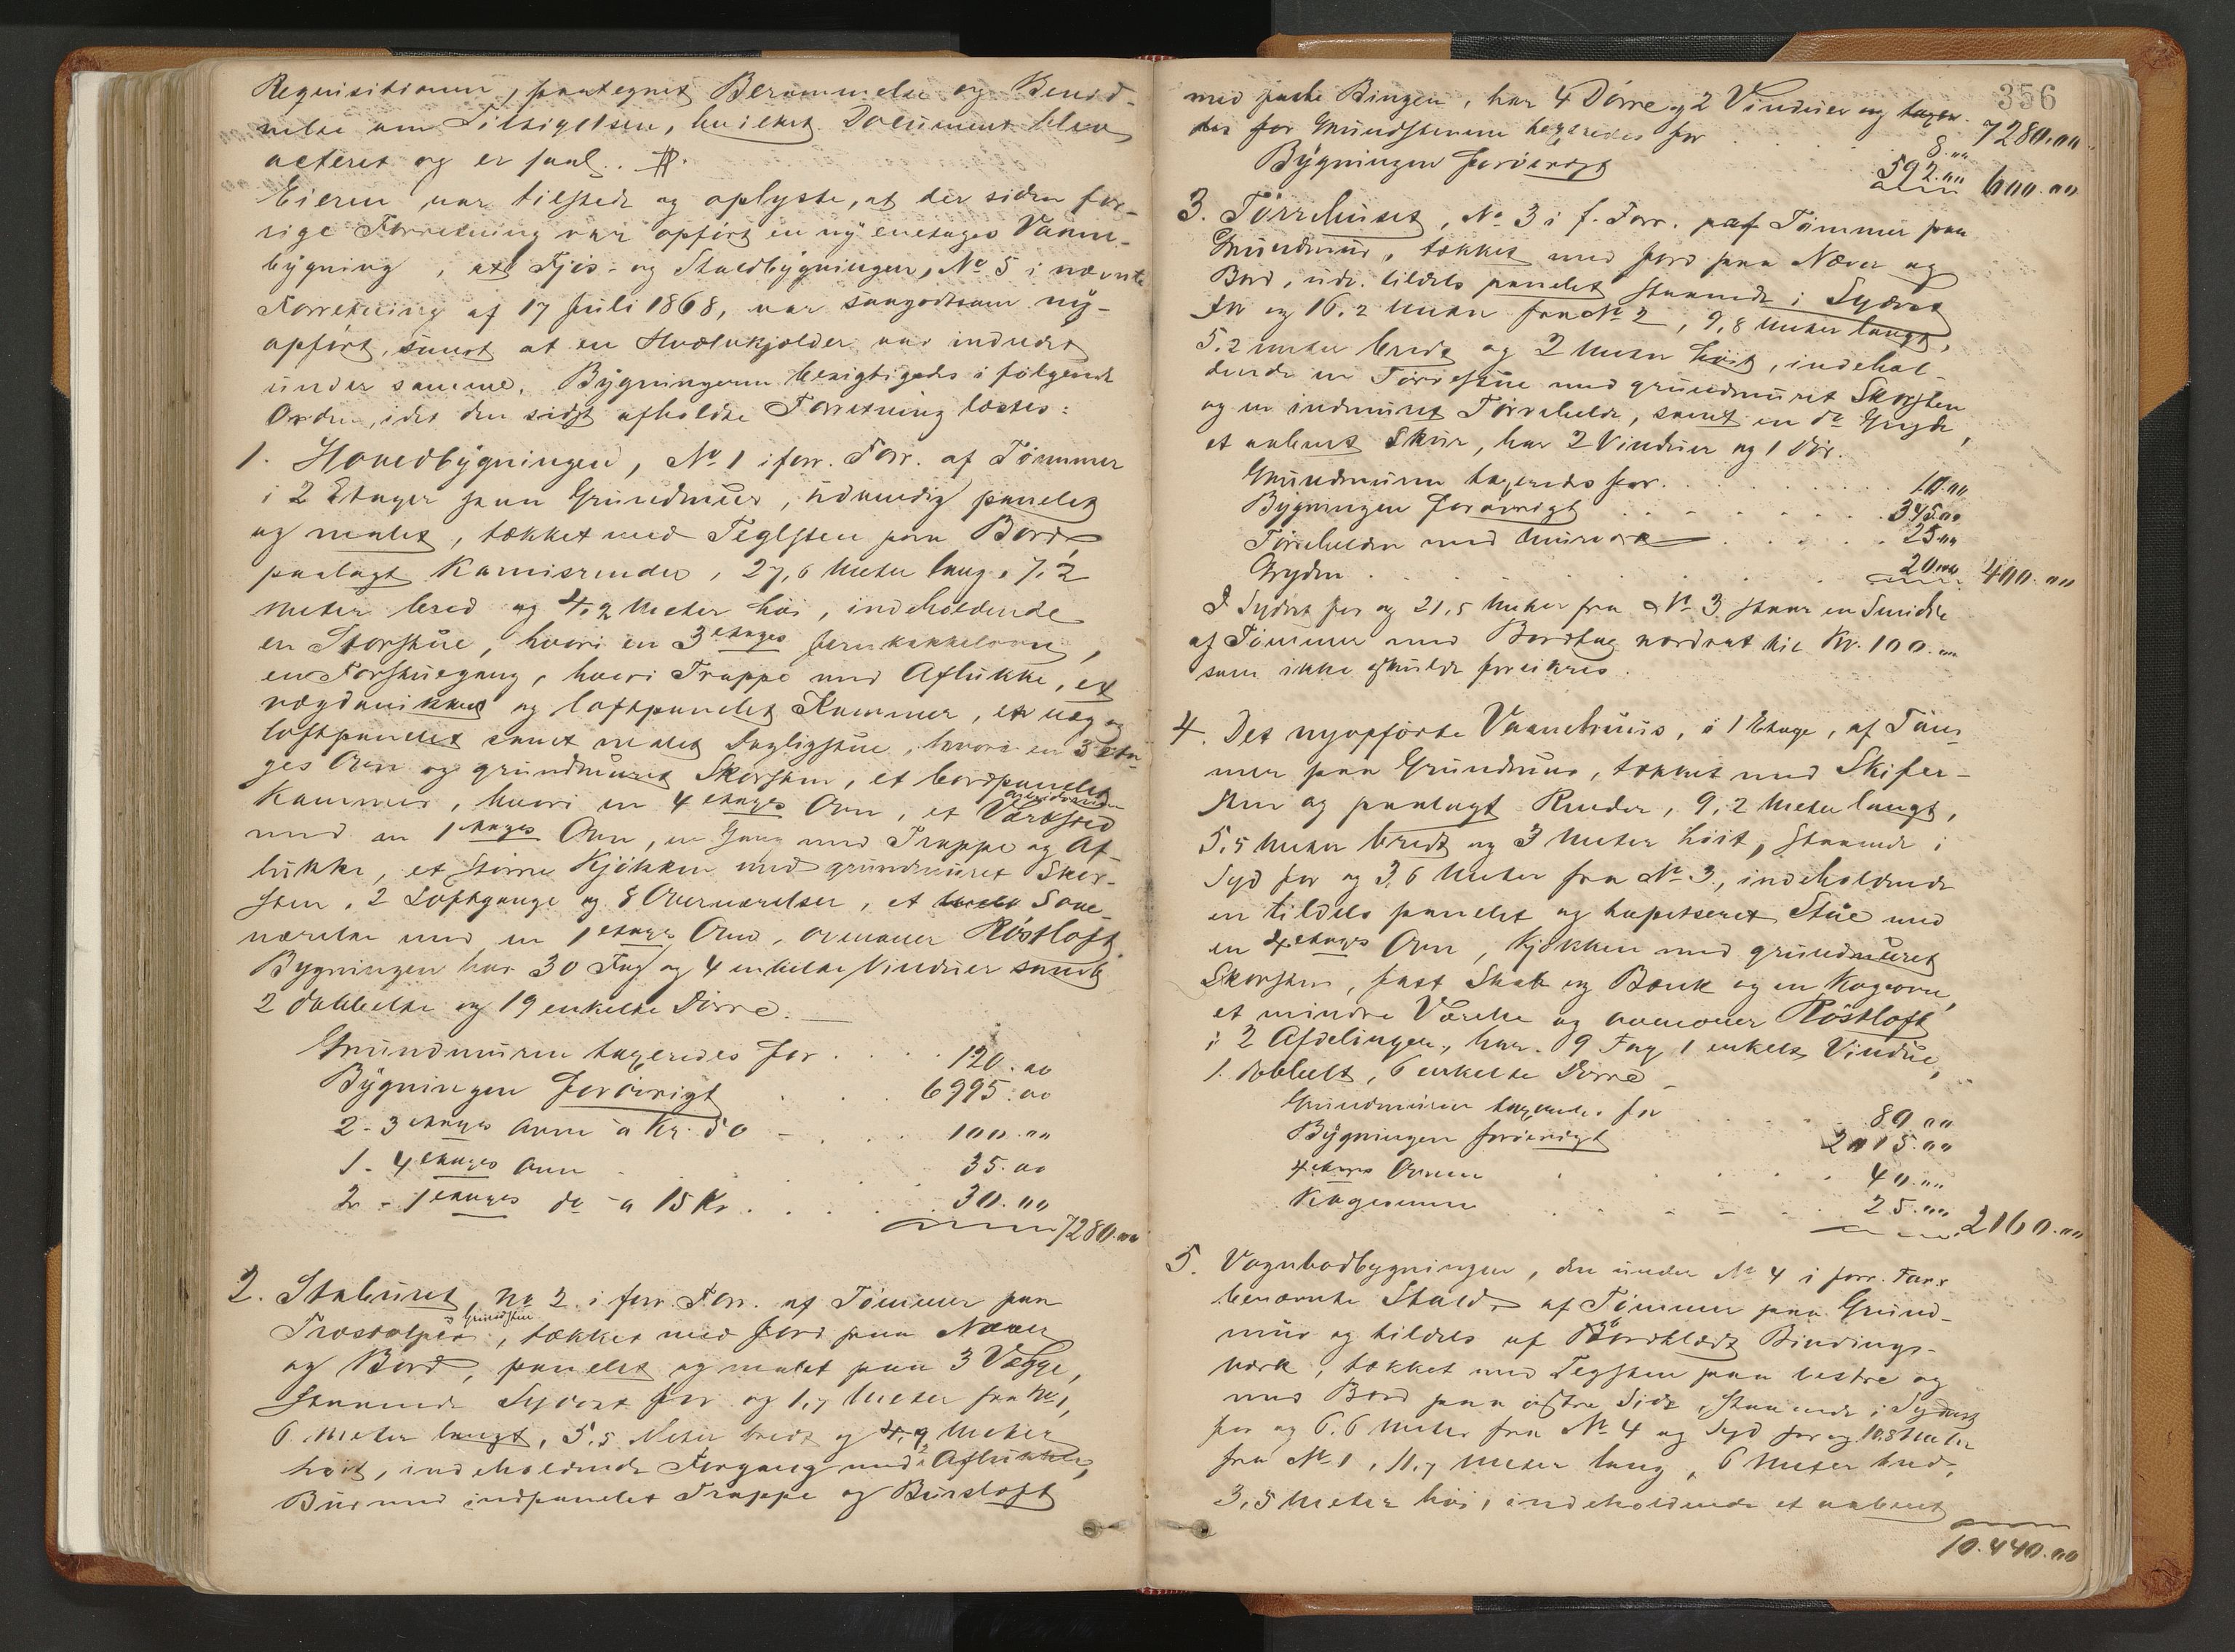 Requisitionen, paategnet Berammelse og Bevid-
nelse om Tilsigelsen, hvilket Document blev
acteret og er saal. #.
Eieren var tilstede og oplyste, at der siden for-
rige Forretning var opført en ny eenetages Vaane-
bygning, at Fjös- og Staldbygningen, No 5 i nævnte
Forretning af 17 Juli 1868, var saagodtsom ny-
opført, samt at en Hvælvkjelder var indredet
under samme. Bygningerne besigtigedes i følgende
Orden, idet den sidst afholdte Forretning læstes:
1. Hovedbygningen, No 1 i forr. Forr. af Tömmer
i 2 Etager paa Grundmuur, udvendig panelet
og malet, tækket med Teglsten paa Bord
paalagt Karnisrender, 27,6 Meter lang, 7,2
Meter bred og 4,2 Meter høi, indeholdende
en Storstue, hvori en 3 etages Jernkakkelovn,
en Forstuegang, hvori Trappe med Aflukke, et
og loftpanelet Kammer, en væg og
loftpanelet samt malet Dagligstue, hvori en 3 eta-
ges Ovn og grundmuret Skorsten, et bordpanelet
Kammer, hvori en 4 etages Ovn, et Værksted
med en 1 etages Ovn, en Gang med Trappe og Af-
lukke, et större Kjökken med grundmuret Skor-
sten, 2 Loftgange og 8 Overværelser, et Sove-
værelse med en 1 etages Ovn, ovenover Röstloft.
Bygningen har 30 Fag og 4 enkelte Vinduer samt
2 dobbelte og 19 enkelte Dörre.
Grundmuren taxeredes for . . . . 120.00
Bygningen forövrigt . . . 6995.00
2 - 3 etages Ovne a Kr. 50 - . . . 100.00
1 - 4 etages Ovn . . . 35.00
2 - 1 etages do a 15 Kr. . . . 30.00
7280.00
2. Stabuuret, No 2 i forr. Forr. af Tömmer paa
Træstolper, tækket med Jord paa Næver
og Bord, panelet og malet paa 3 Vægge,
staaende Sydvest for og 1,7 Meter fra No 1,
6 Meter langt, 5,5 Meter bredt og 4,9 Meter
høit, indeholdende Forgang med 2 Aflukker,
Buur med indpanelet Trappe og Buursloft
356
med faste Binger, har 4 Dörre og 2 Vinduer og taxer- 7280.00
des for Grundstenene taxeredes for . . . 8.00
Bygningen forövrigt 592.00 600.00
3. Törrehuset, No 3 i f. Forr. af Tömmer paa
Grundmuur, tækket med Jord paa Næver og
Bord, udv. tildels panelet staaende i Sydvest
for og 16,2 Meter fra No 2, 9,8 Meter langt,
5,2 Meter bredt og 2 Meter høit, indehol-
dende en Törrestue med grundmuret Skorsten
og en indmuret Törrehelde, samt en do Gryde,
et aabent Skuur, har 2 Vinduer og 1 Dör.
Grundmuren taxeredes for . . . 10.00
Bygningen forövrigt . . . 345.00
Törrehelden med Muurværk . . . 25.00
Gryden . . . 20.00 400.00
I Sydvest for og 21,5 Meter fra No 3 staar en Smidie
af Tömmer med Bordtag værdsat til Kr. 100.00
som ikke skulde forsikres.
4. Det nyopförte Vaanehuus, i 1 Etage, af Töm-
mer paa Grundmuur, tækket med Skifer-
sten og paalagt Render, 9,2 Meter langt,
5,5 Meter bredt og 3 Meter höit, staaende i
Syd for og 3,6 Meter fra No 3, indeholdende
en tildels panelet og tapetseret Stue med
en 4 etages Ovn, Kjökken med grundmuret
Skorsten, fast Skab og Bænk og en Kogeovn,
et mindre Værelse og ovenover Röstloft
i 2 Afdelinger, har 9 Fag 1 enkelt Vindue,
1 dobbelt, 6 enkelte Dörre -
Grundmuren taxeredes for . . . 80.00
Bygningen forövrigt 2015.00
4 etages Ovnen . . . 40.00
Kogeovnen . . . 25.00 2160.00
5. Vognbodbygningen, den under No 4 i forr. Forr.
benævnte Stald, af Tömmer paa Grund-
muur og tildels af Bordklædt Bindings-
værk, tækket med Teglsten paa vestre og
med Bord paa östre Side, staaende i Sydvest
for og 6,6 Meter fra No 4 og Syd for og 10,8 Meter
fra No 1, 11,7 Meter lang, 6 Meter bred,
3,5 Meter høi, indeholdende et aabent
10.440.00